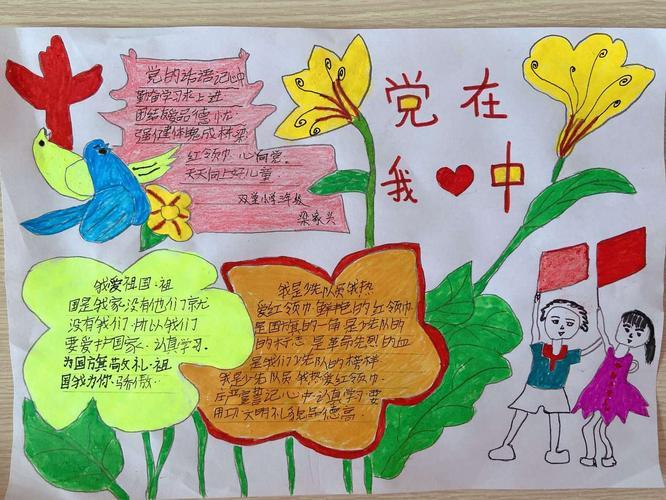 党在
我 中
党的话语记心中
勤奋学习求上进
团结友爱品德优
强健体魄成栋梁
红领巾心向党.
天天向上好儿童
双堂小学三年级
梁家兴
我爱祖国.祖
国是我家没有他们就
没有我们.所以我们
要爱护国家.认真学习.
为国方旗敬礼.祖
国我为你.骄傲.
我是少先队员我热
爱红领巾 鲜艳的红领巾
是国旗的一角 是少先队的
的标志 是革命先烈的血
是我们少先队的榜样
我是少先队员 我热爱红领巾
庄严誓记心中认真学习要
用功 文明礼貌品德高.